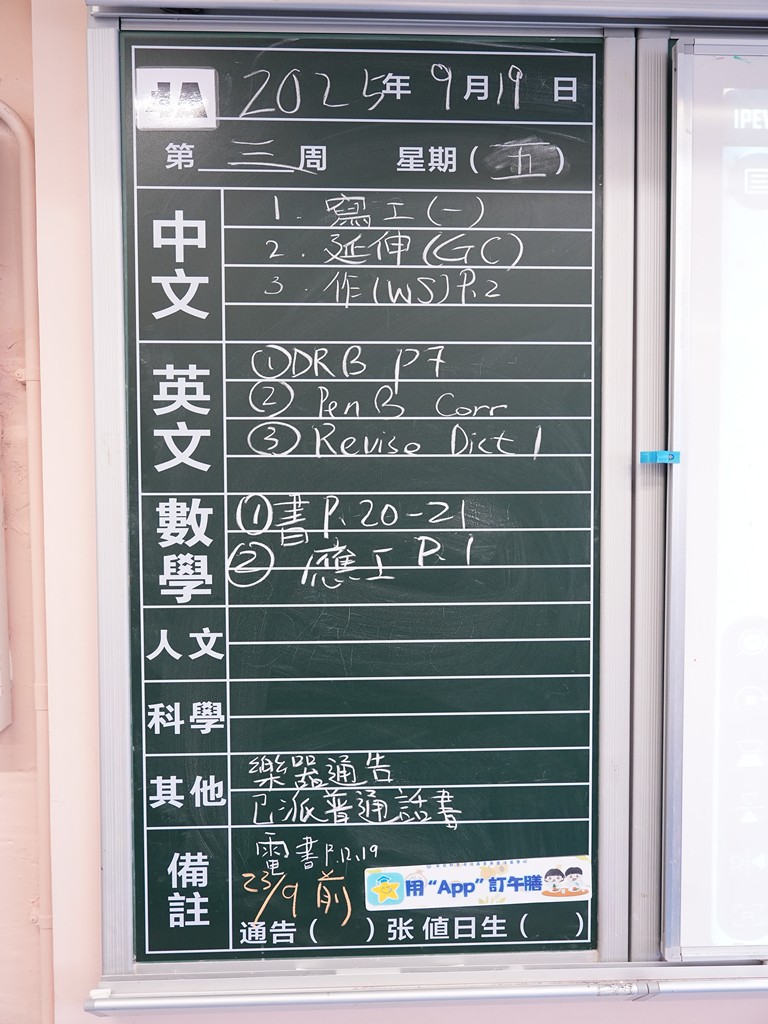 1A 2025年9月19日
第三周 星期(五)
中文
1. 寫工(一)
2. 延伸(GC)
3. 作(WS)P.2
英文
①DRB p7
② Pen B Corr
③ Revise Dict 1
數學
①書P.20-21
② 應工 P.1
人文
科學
其他
樂器通告
已派普通話書
備註
電書P.12,19
23/9前
用“App”訂午膳
通告( )张 值日生( )
IPEV